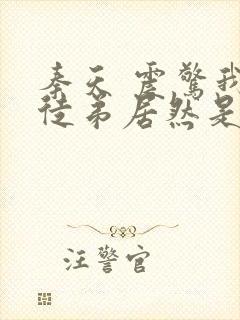 秦天 震驚我
徒弟居然是
汪警官